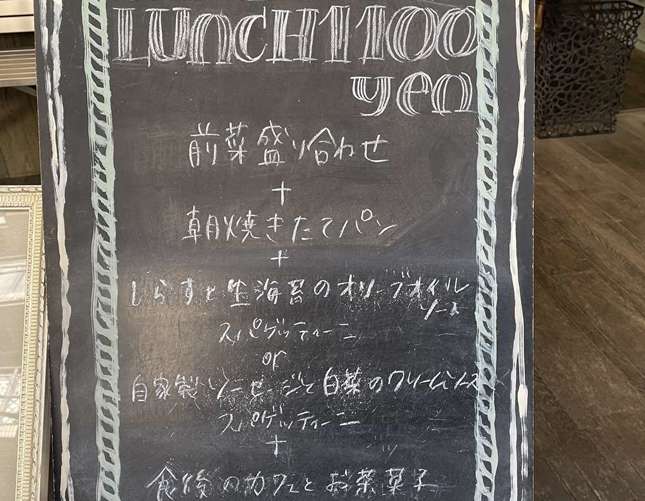 LUNCH 1100
yen
前菜盛り合わせ
+
朝焼きたてパン
+
しらすと生海苔のオリーブオイル
ソース
スパゲッティーニ
or
自家製ソーセージと白菜のクリームソース
スパゲッティーニ
+
食後のカフェとお茶菓子